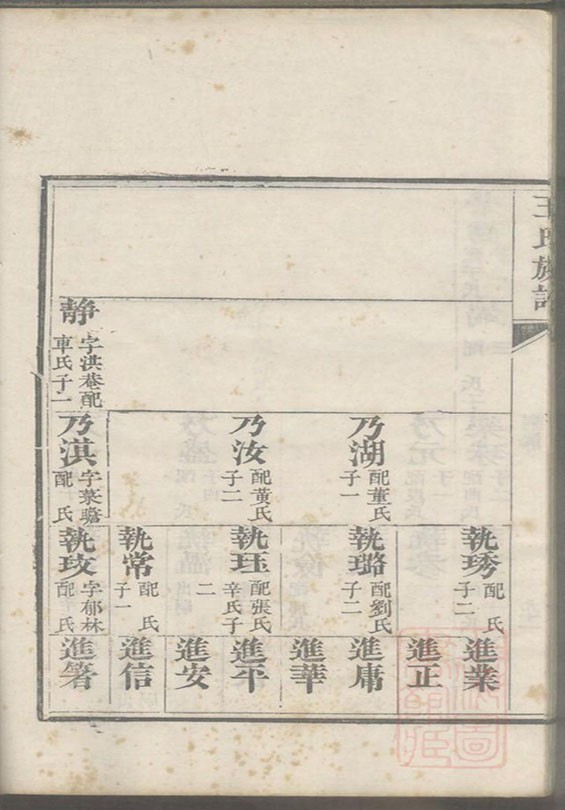 王氏族譜
執琇 配 氏
子二
進業
進正
乃湖 配董氏
子一
執璐 配劉氏
子二
進庸
進華
乃汝 配黄氏
子二
執珏 配張氏
辛氏子
二
進平
進安
執常 配 氏
子一
進信
静 字洪菴配
車氏子一
乃淇 字菉瞻
配 氏
執玫 字郁林
配 氏
進箸